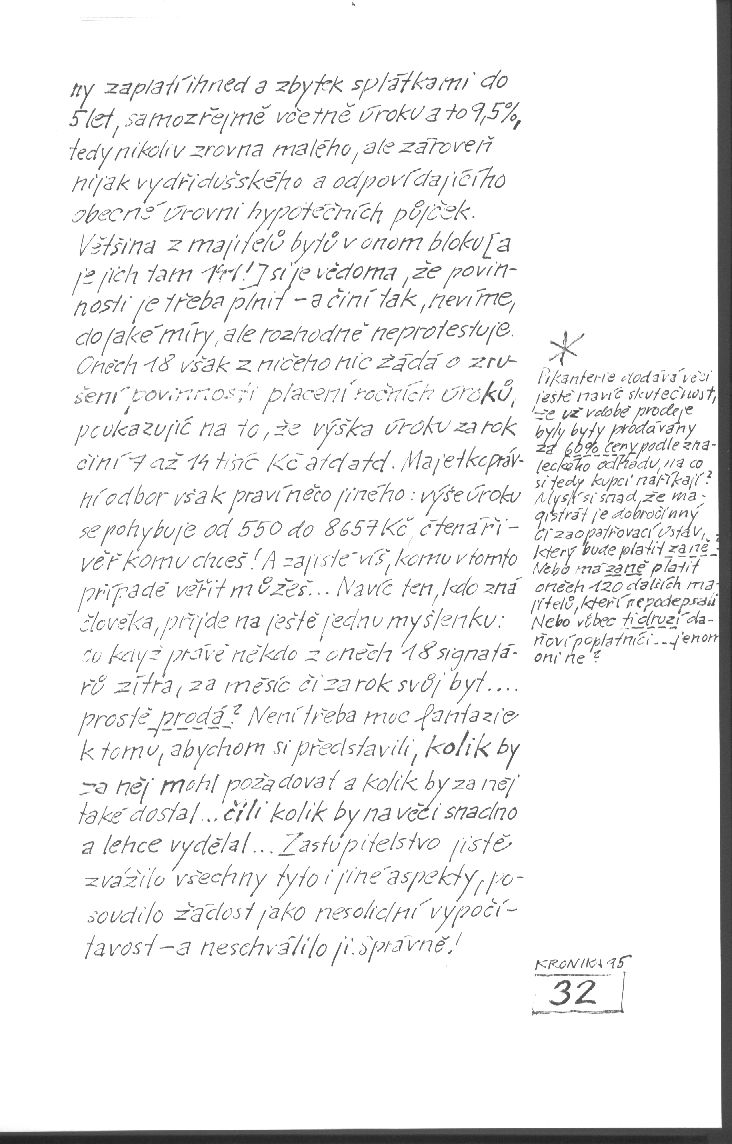 ny zaplatí ihned a zbytek splátkami do
5 let, samozřejmě včetně úroku a to 9,5%,
tedy nikoliv zrovna malého, ale zároveň
nijak vydřidušského a odpovídajícího
obecné úrovni hypotéčních půjček.
Většina z majitelů bytů v onom bloku [a
je jich tam 141!] si je vědoma, že povin-
nosti je třeba plnit – a činí tak, nevíme,
do jaké míry, ale rozhodně neprotestuje.
Oněch 18 však z ničeho nic žádá o zru-
šení povinnosti placení ročních úroků,
poukazujíc na to, že výška úroku za rok
činí 7 až 14 tisíc Kč atd atd. Majetkopráv-
ní odbor však praví něco jiného: výše úroku
se pohybuje od 550 do 8657 Kč, čtenáři –
věř komu chceš! A zajisté víš, komu v tomto
případě věřit můžeš... Navíc ten, kdo zná
člověka, přijde na ještě jednu myšlenku:
co když právě někdo z oněch 18 signatá-
řů zítra, za měsíc či za rok svůj byt....
prostě prodá? Není třeba moc fantazie
k tomu, abychom si představili, kolik by
za něj mohl požadovat a kolik by za něj
také dostal... čili kolik by na věci snadno
a lehce vydělal... Zastupitelstvo jistě
zvážilo všechny tyto i jiné aspekty, po-
soudilo žádost jako nesolidní vypočí-
tavost – a neschválilo ji. Správně!
*
Pikanterie dodává věci
ještě navíc skutečnost,
že už v době prodeje
byly byty prodávány
za 60% ceny podle zna-
leckého odhadu, na co
si tedy kupci naříkají?
Myslí si snad, že ma-
gistrát je dobročinný
či zaopatřovací ústav,
který bude platit za ně?
Nebo má za ně platit
oněch 120 dalších ma-
jitelů, kteří nepodepsali
Nebo vůbec ti druzí da-
ňoví poplatníci... jenom
oni ne?
KRONIKA 95
32